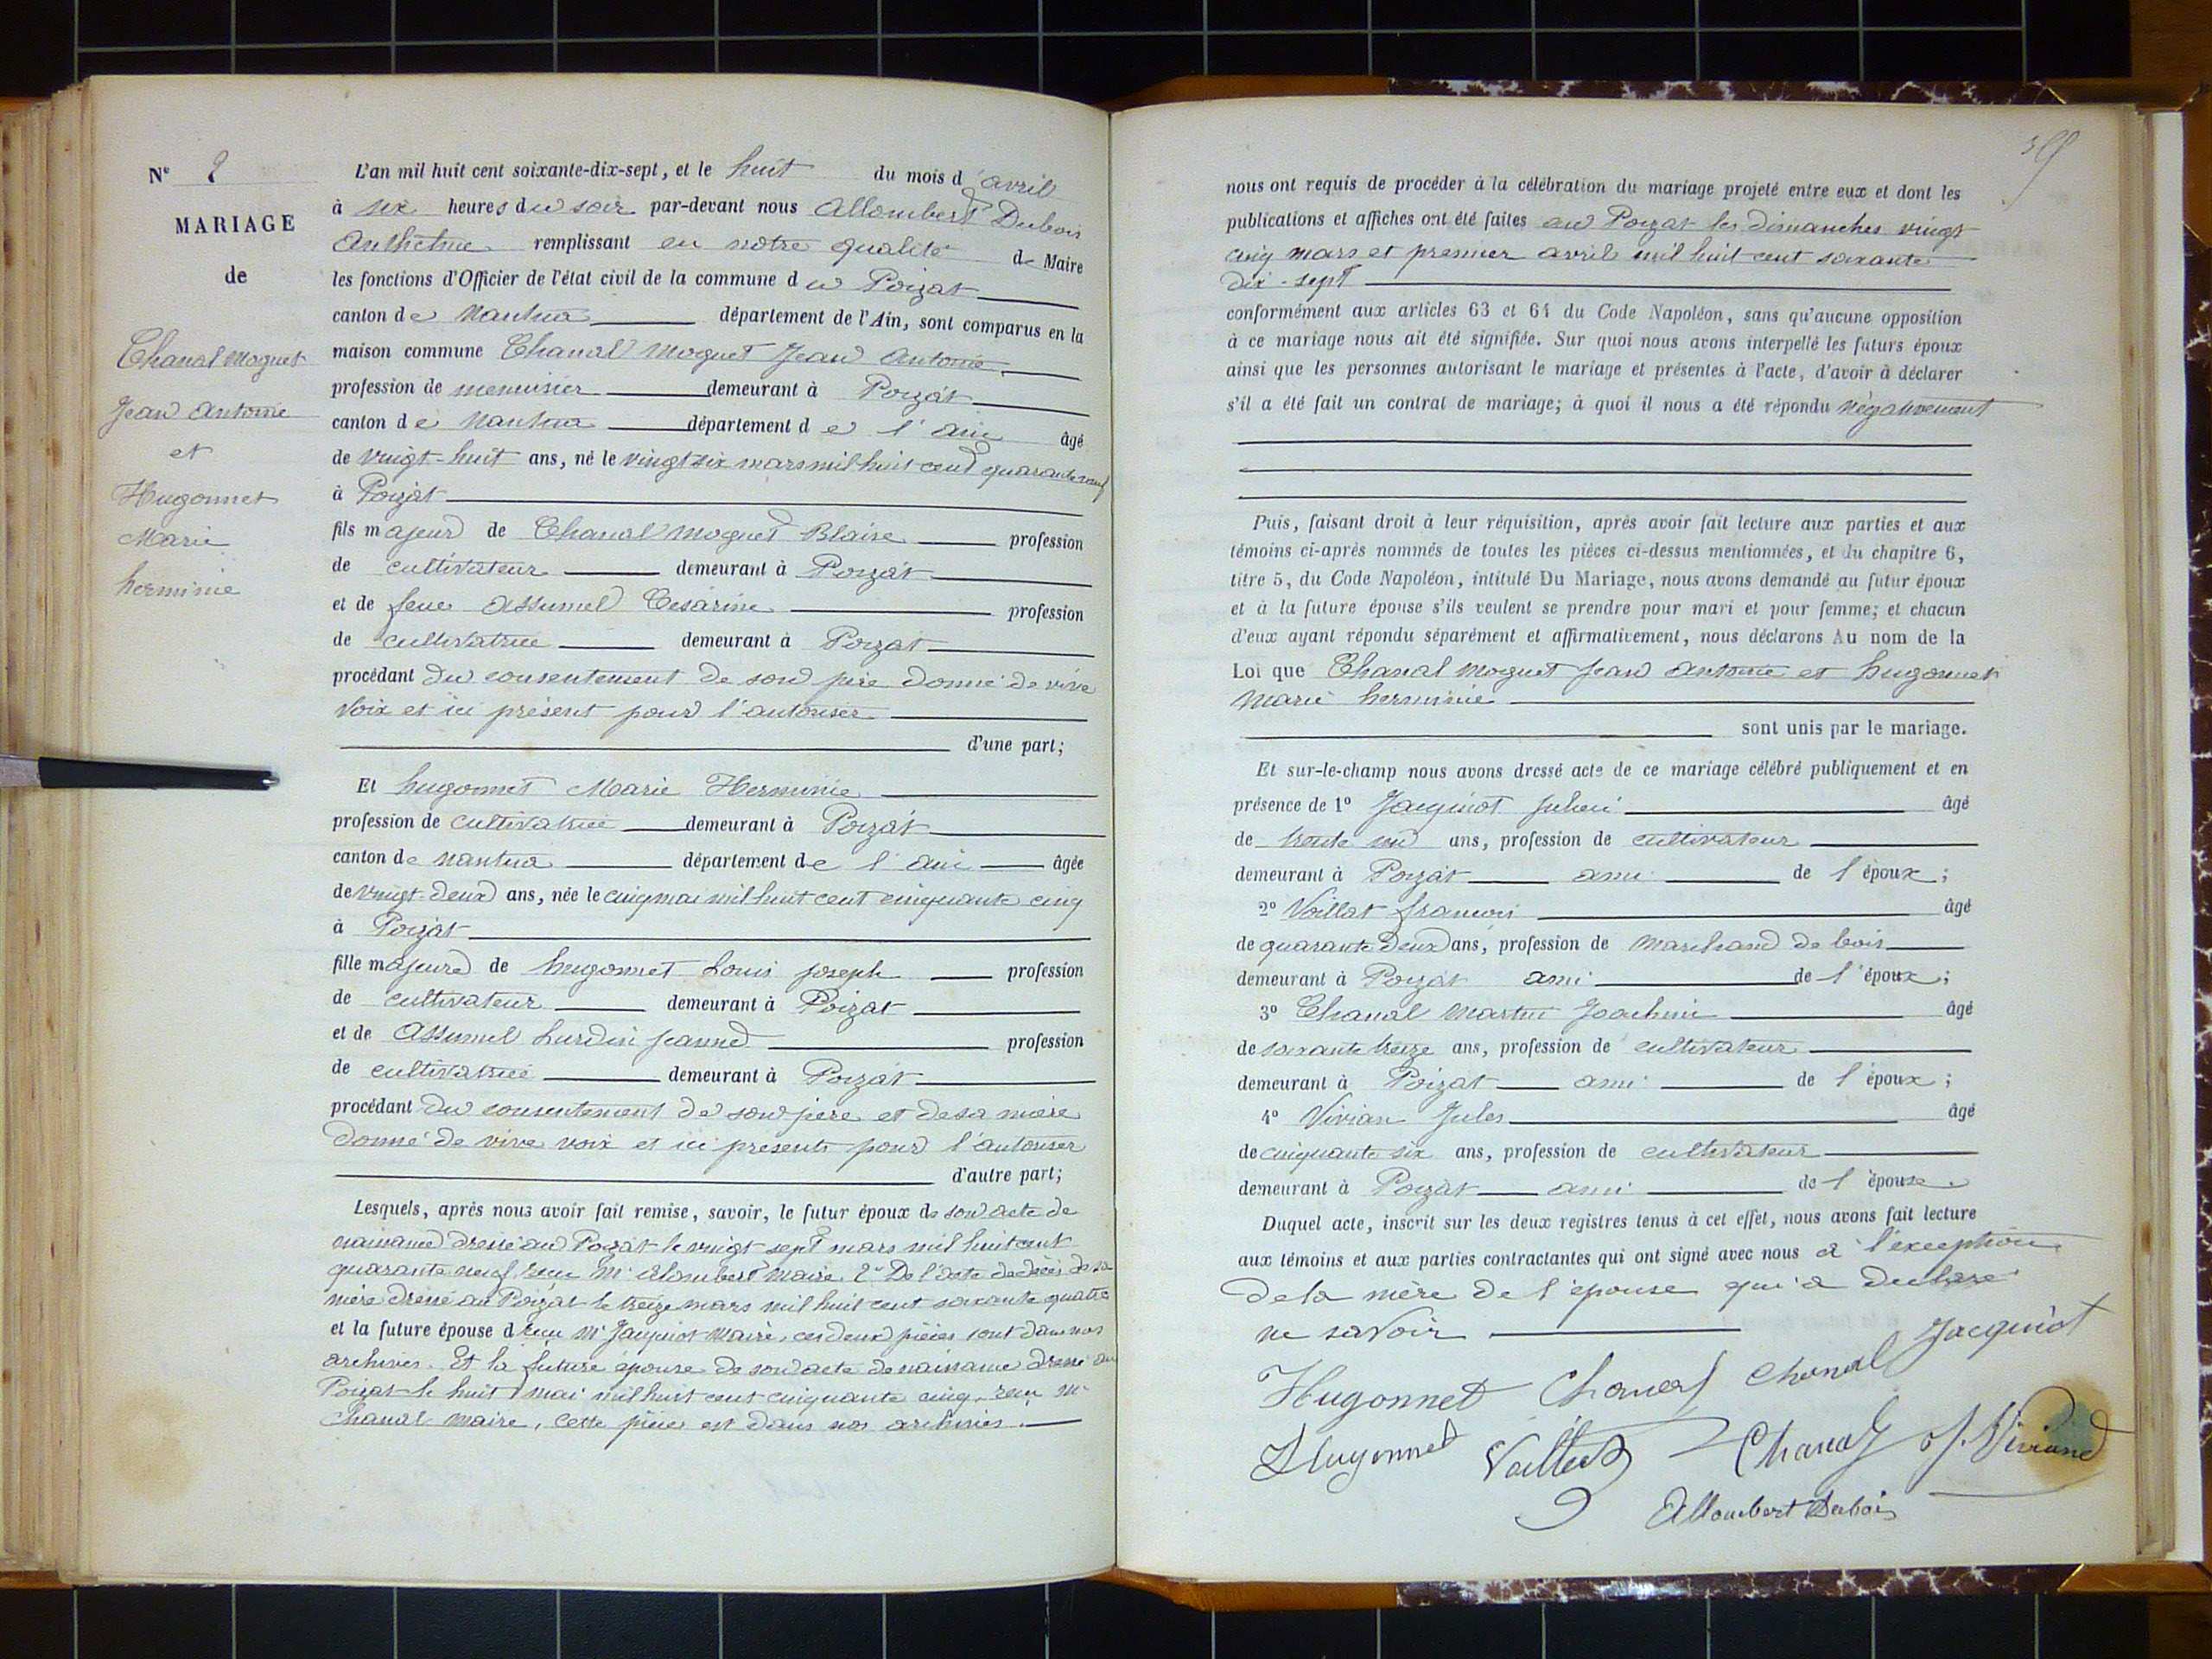 Nº 2
MARIAGE
de
Chanal Moguet
Jean Antoine
et
Hugonnet
Marie
herminie
L'an mil huit cent soixante-dix-sept, et le huit du mois d'avril
à six heures du soir par-devant nous Allombert Dubois
Anthelme remplissant en notre qualité de Maire
les fonctions d'Officier de l'état civil de la commune du Poizat
canton de Nantua département de l'Ain, sont comparus en la
maison commune Chanal Moguet Jean Antoine
profession de menuisier demeurant à Poizat
canton de Nantua département de l'ain âgé
de vingt-huit ans, né le vingt six mars mil huit cent quarante neuf
à Poizat
fils majeur de Chanal Moguet Blaise profession
de cultivateur demeurant à Poizat
et de feue Assumel Césarine profession
de cultivatrice demeurant à Poizat
procédant du consentement de son père donné de vive
voix et ici présent pour l'autoriser
d'une part;
Et hugonnet Marie Herminie
profession de cultivatrice demeurant à Poizat
canton de nantua département de l'ain âgée
de vingt-deux ans, née le cinq mai mil huit cent cinquante cinq
à Poizat
fille majeure de hugonnet Louis joseph profession
de cultivateur demeurant à Poizat
et de Assumel Lurdin jeanne profession
de cultivatrice demeurant à Poizat
procédant du consentement de son père et de sa mère
donné de vive voix et ici présents pour l'autoriser
d'autre part;
Lesquels, après nous avoir fait remise, savoir, le futur époux de son acte de
naissance dressé au Poizat le vingt sept mars mil huit cent
quarante neuf, reçu Mr Alombert maire. 2º De l'acte de décès de sa
mère dressé au Poizat le treize mars mil huit cent soixante quatre
et la future épouse d reçu Mr Jacquiot Maire, ces deux pièces sont dans nos
archives. Et la future épouse de son acte de naissance dressé au
Poizat le huit mai mil huit cent cinquante cinq, reçu Mr
Chanal maire, cette pièce est dans nos archives.
39
nous ont requis de procéder à la célébration du mariage projeté entre eux et dont les
publications et affiches ont été faites au Poizat les dimanches vingt
cinq mars et premier avril mil huit cent soixante
dix-sept
conformément aux articles 63 et 64 du Code Napoléon, sans qu'aucune opposition
à ce mariage nous ait été signifiée. Sur quoi nous avons interpellé les futurs époux
ainsi que les personnes autorisant le mariage et présentes à l'acte, d'avoir à déclarer
s'il a été fait un contrat de mariage; à quoi il nous a été répondu négativement
Puis, faisant droit à leur réquisition, après avoir fait lecture aux parties et aux
témoins ci-après nommés de toutes les pièces ci-dessus mentionnées, et du chapitre 6,
titre 5, du Code Napoléon, intitulé Du Mariage, nous avons demandé au futur époux
et à la future épouse s'ils veulent se prendre pour mari et pour femme; et chacun
d'eux ayant répondu séparément et affirmativement, nous déclarons Au nom de la
Loi que Chanal Moguet Jean Antoine et hugonnet
Marie herminie
sont unis par le mariage.
Et sur-le-champ nous avons dressé acte de ce mariage célébré publiquement et en
présence de 1º Jacquiot Julien âgé
de trente un ans, profession de cultivateur
demeurant à Poizat ami de l'époux;
2º Vaillat françois âgé
de quarante deux ans, profession de Marchand de bois
demeurant à Poizat ami de l'époux;
3º Chanal Martin Joachim âgé
de soixante treize ans, profession de cultivateur
demeurant à Poizat ami de l'époux;
4º Vivian Jules âgé
de cinquante six ans, profession de cultivateur
demeurant à Poizat ami de l'épouse
Duquel acte, inscrit sur les deux registres tenus à cet effet, nous avons fait lecture
aux témoins et aux parties contractantes qui ont signé avec nous à l'exception
de la mère de l'épouse qui a déclaré
ne savoir
Hugonnet Chanal Chanal Jacquiot
Hugonnet Vaillat Chanal J. Viviand
Allombert Dubois